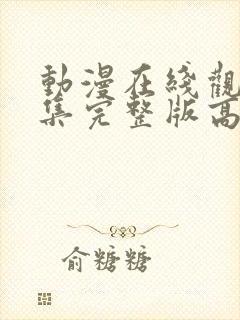 動漫在綫觀
集完整版高
俞糖糖